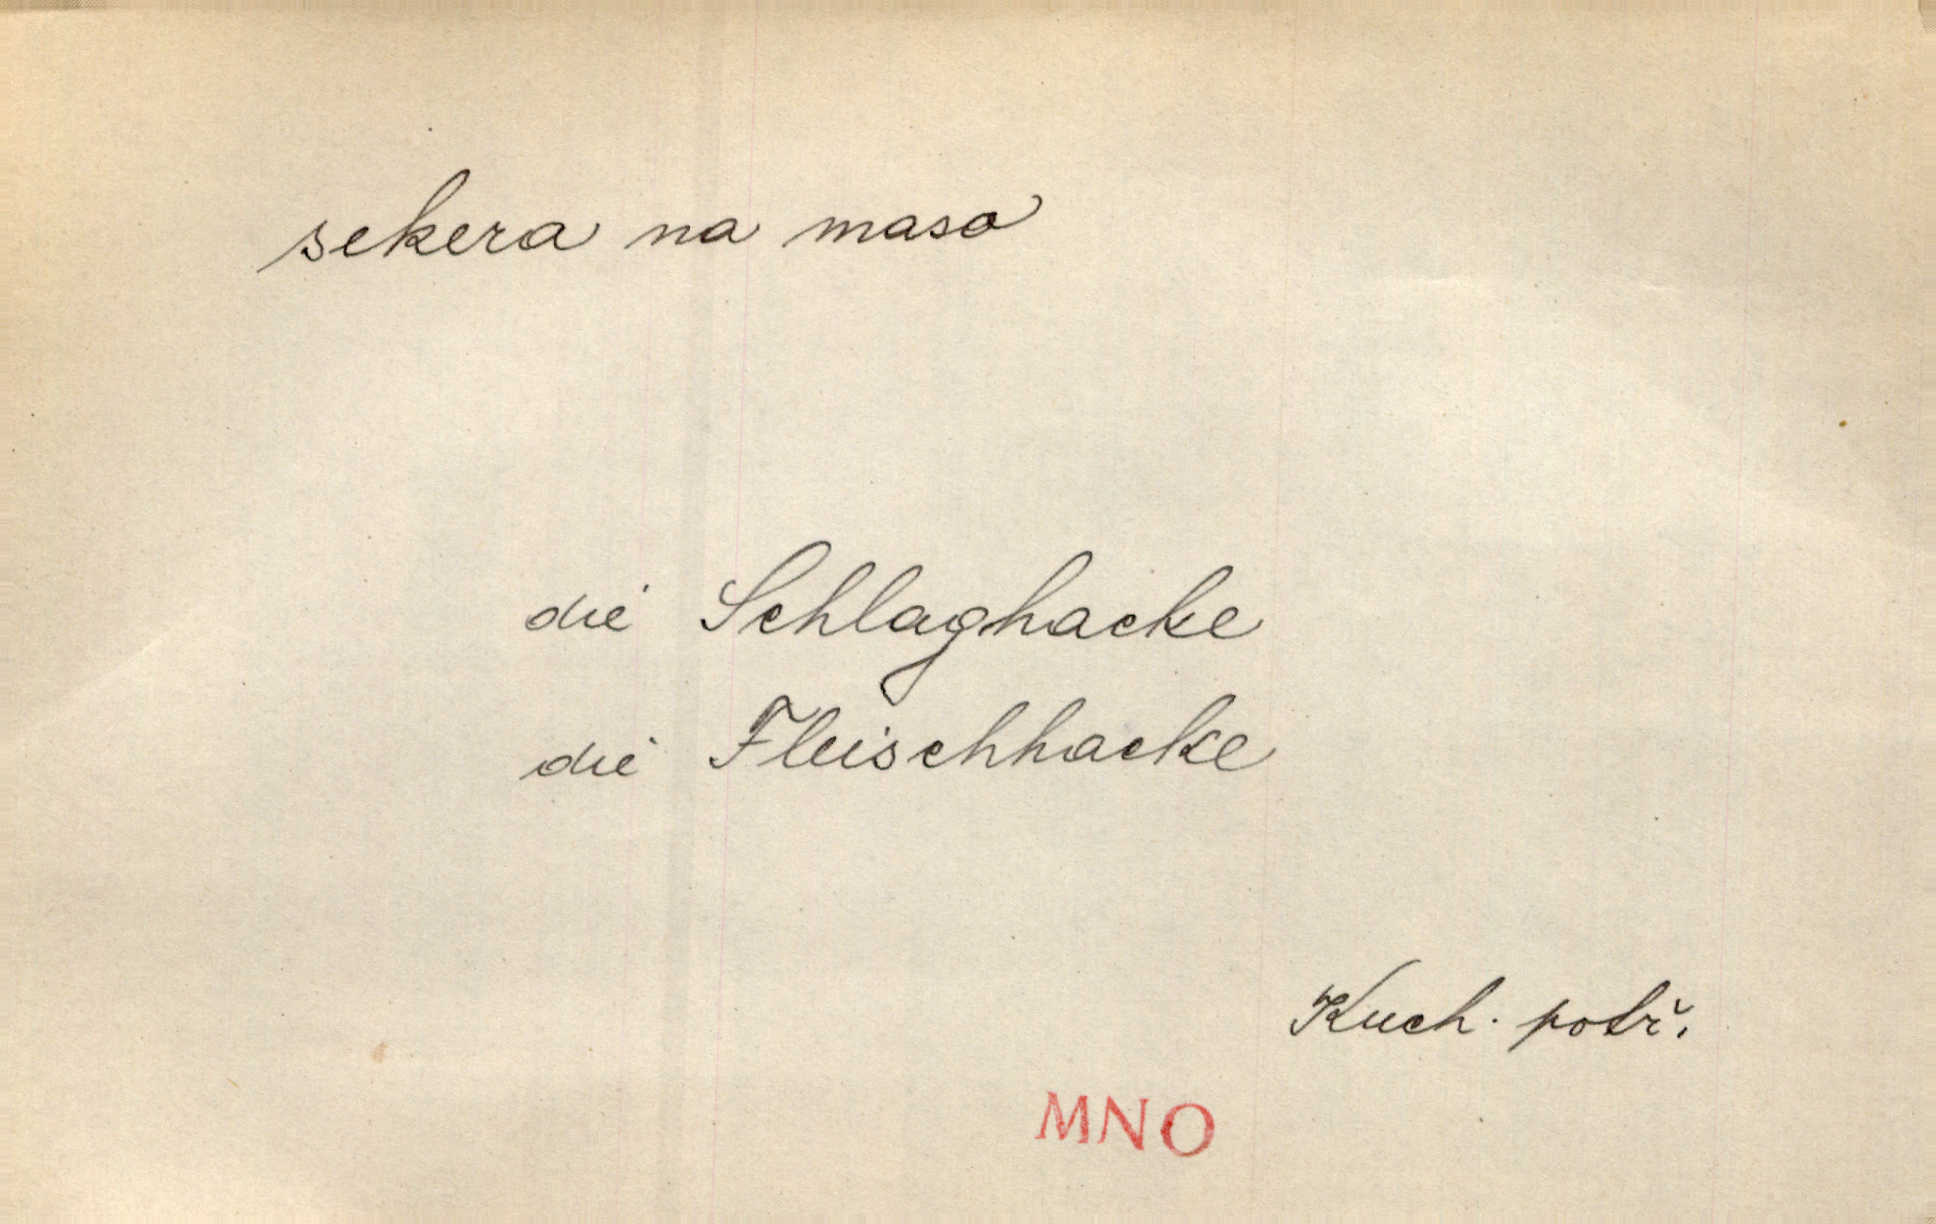 sekera na maso
die Schlaghacke
die Fleischhacke
Kuch. potř.
MNO